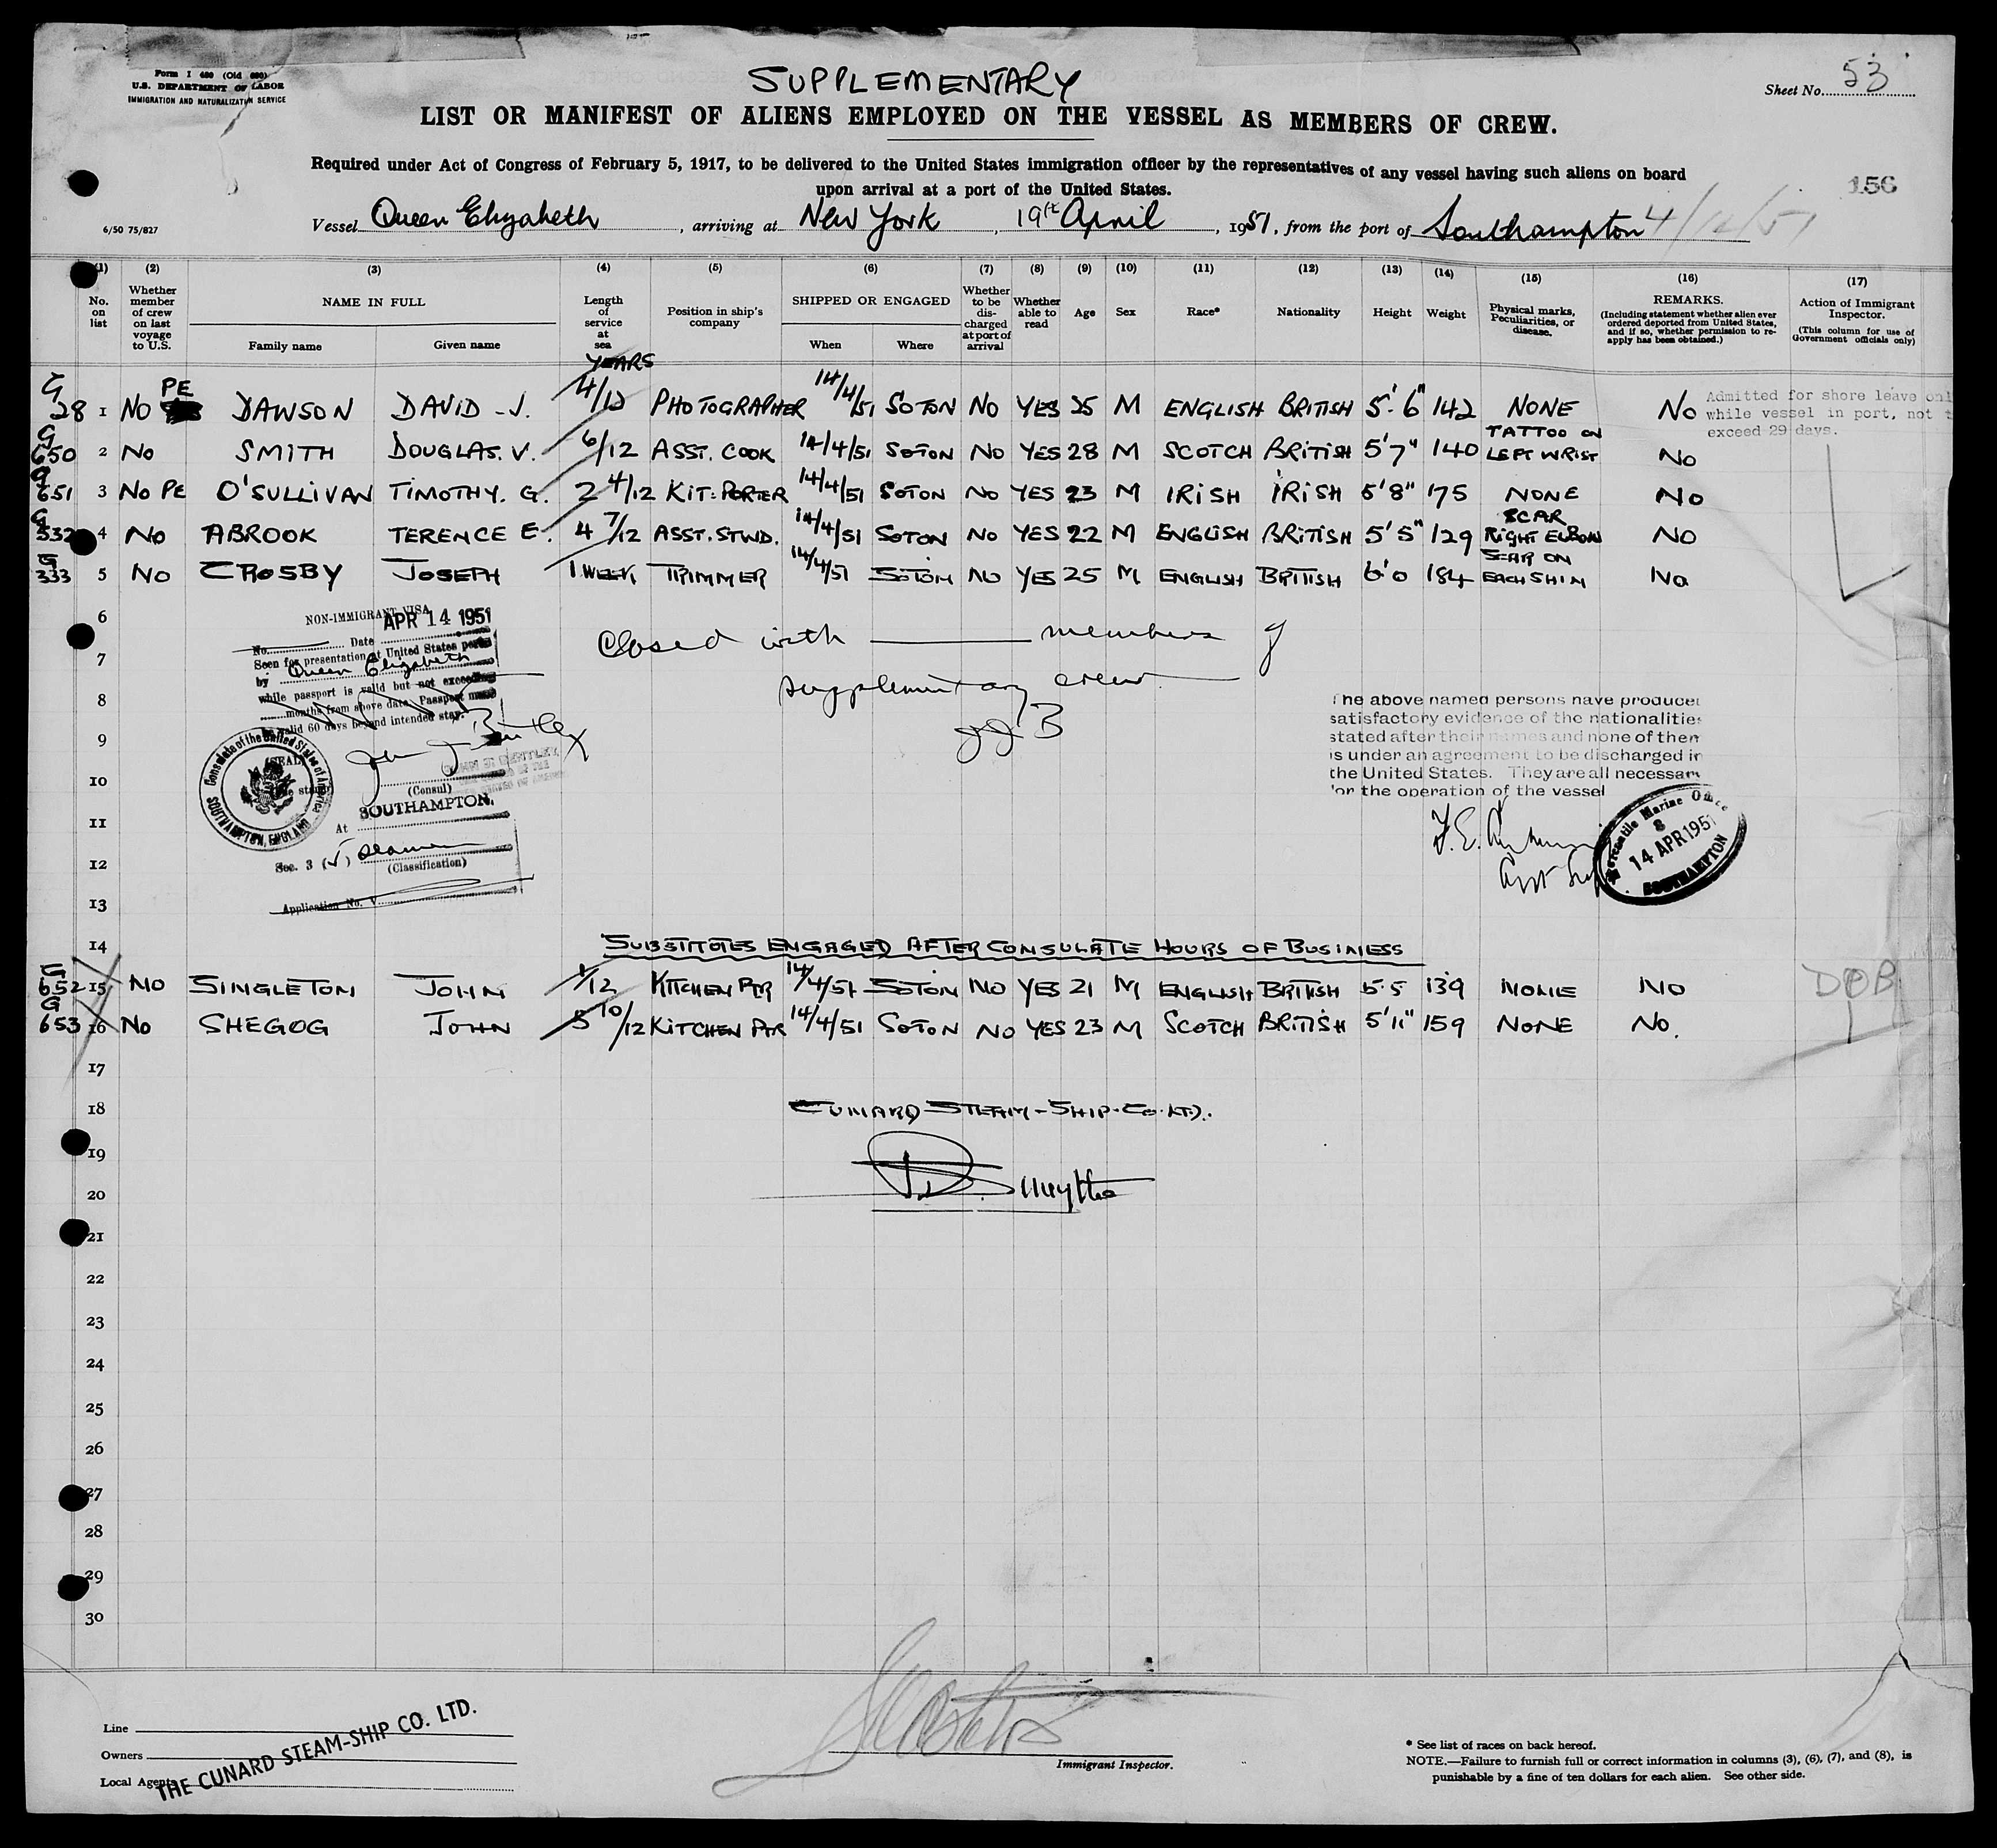 Form I 480 (Old 680)
U.S. DEPARTMENT OF LABOR
IMMIGRATION AND NATURALIZATION SERVICE
SUPPLEMENTARY
Sheet No. 53
LIST OR MANIFEST OF ALIENS EMPLOYED ON THE VESSEL AS MEMBERS OF CREW.
Required under Act of Congress of February 5, 1917, to be delivered to the United States immigration officer by the representatives of any vessel having such aliens on board
upon arrival at a port of the United States.
156
6/50 75/827
Vessel Queen Elizabeth, arriving at New York, 19th April, 1951, from the port of Southampton
(1) (2) (3) (4) (5) (6) (7) (8) (9) (10) (11) (12) (13) (14) (15) (16) (17)
No. on list
Whether member of crew on last voyage to U.S.
NAME IN FULL
Family name Given name
Length of service at sea
YEARS
Position in ship's company
SHIPPED OR ENGAGED
When Where
Whether to be discharged at port of arrival
Whether able to read
Age
Sex
Race*
Nationality
Height
Weight
Physical marks, Peculiarities, or disease.
REMARKS.
(Including statement whether alien ever ordered deported from United States, and if so, whether permission to re-apply has been obtained.)
Action of Immigrant Inspector.
(This column for use of Government officials only)
G 28 1 No PE DAWSON DAVID - J. 4/12 PHOTOGRAPHER 14/4/51 SOTON NO YES 25 M ENGLISH BRITISH 5'-6" 142 NONE No
Admitted for shore leave
while vessel in port, not
exceed 29 days.
G 650 2 No SMITH DOUGLAS. V. 6/12 ASST. COOK 14/4/51 SOTON NO YES 28 M SCOTCH BRITISH 5'7" 140 TATTOO ON LEFT WRIST No
G 651 3 No PE O'SULLIVAN TIMOTHY. G. 2 4/12 KIT: PORTER 14/4/51 SOTON NO YES 23 M IRISH IRISH 5'8" 175 NONE No
G 332 4 No ABROOK TERENCE E. 4 7/12 ASST. STWD. 14/4/51 SOTON NO YES 22 M ENGLISH BRITISH 5'5" 129 SCAR RIGHT ELBOW NO
G 333 5 NO CROSBY JOSEPH 1 WEEK TRIMMER 14/4/51 SOTON NO YES 25 M ENGLISH BRITISH 6'0 184 SCAR ON EACH SHIN No
6
7
8
9
10
11
12
13
NON-IMMIGRANT VISA
No. Date APR 14 1951
Seen for presentation at United States ports
by Queen Elizabeth
while passport is valid but not exceeding
months from above date. Passport must
be valid 60 days beyond intended stay.
John J. Bentley
JOHN J. BENTLEY
(SEAL)
Consulate of the United States of America
SOUTHAMPTON, ENGLAND
(Consul)
At SOUTHAMPTON.
Sec. 3 (5) seaman
(Classification)
Application No. V
Closed with members of
supplementary crew.
JJB
The above named persons have produced
satisfactory evidence of the nationalities
stated after their names and none of them
is under an agreement to be discharged in
the United States. They are all necessary
for the operation of the vessel
Mercantile Marine Office
8
14 APR 1951
SOUTHAMPTON
14 SUBSTITUTES ENGAGED AFTER CONSULATE HOURS OF BUSINESS
G 652 15 NO SINGLETON JOHN 1/12 KITCHEN PTR 14/4/51 SOTON NO YES 21 M ENGLISH BRITISH 5.5 139 NONE NO
G 653 16 No SHEGOG JOHN 5 10/12 KITCHEN PTR 14/4/51 SOTON NO YES 23 M SCOTCH BRITISH 5'11" 159 NONE No.
17
18 CUNARD STEAM-SHIP. Co. LTD.
19
20
21
22
23
24
25
26
27
28
29
30
Line
Owners
Local Agents
THE CUNARD STEAM-SHIP CO. LTD.
Immigrant Inspector.
* See list of races on back hereof.
NOTE.—Failure to furnish full or correct information in columns (3), (6), (7), and (8), is
punishable by a fine of ten dollars for each alien. See other side.